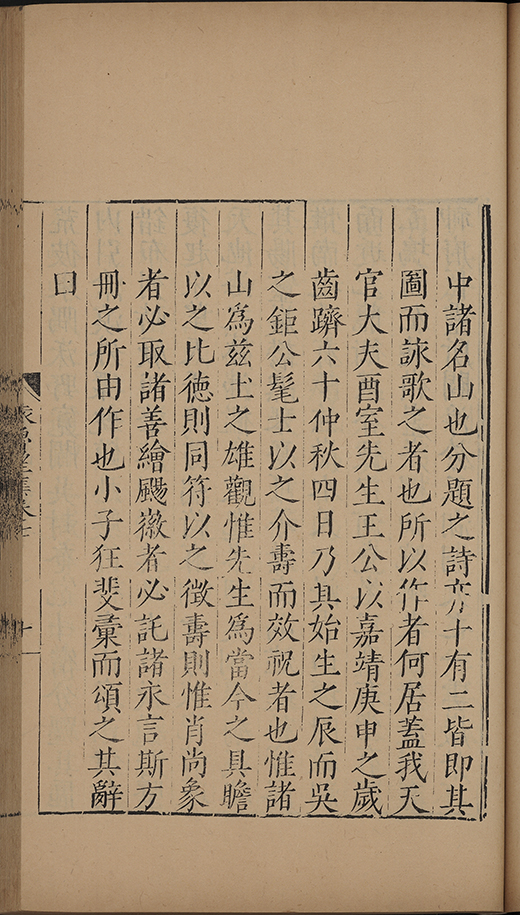 中諸名山也分題之詩亦十有二皆即其
圖而詠歌之者也所以作者何居蓋我天
官大夫酉室先生王公以嘉靖庚申之歲
齒躋六十仲秋四日乃其始生之辰而吳
之鉅公髦士以之介壽而效祝者也惟諸
山爲兹土之雄觀惟先生爲當今之具瞻
以之比德則同符以之徵壽則惟肖尚象
者必取諸善繪颺徽者必託諸永言斯方
冊之所由作也小子狂斐彙而頌之其辭
曰